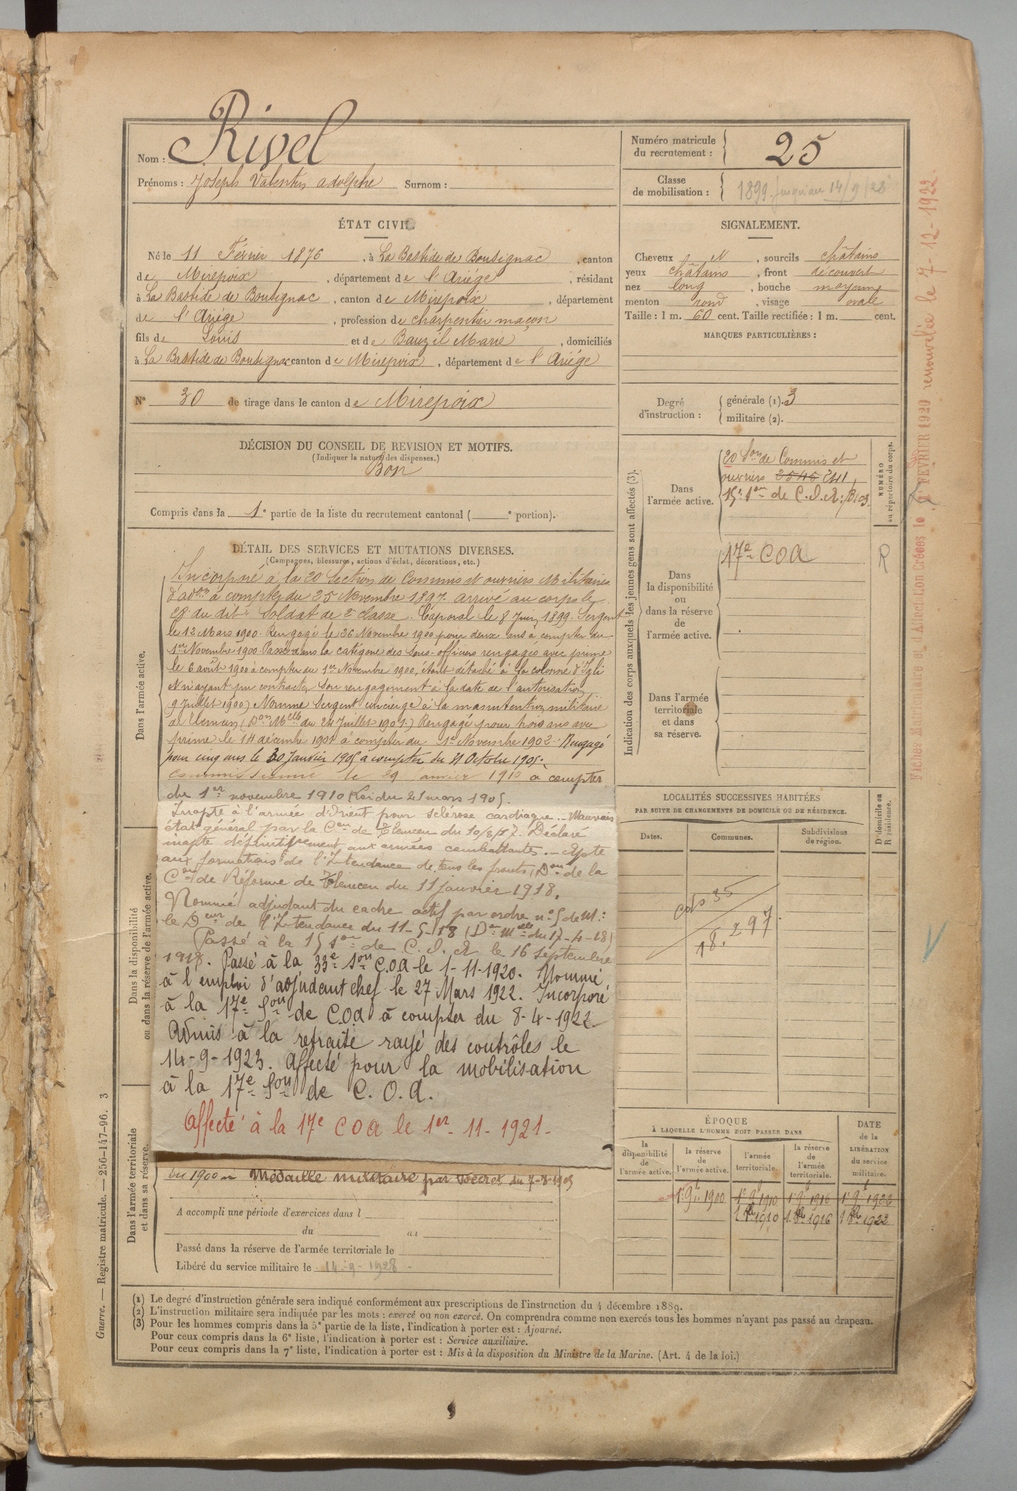 Nom : Rivel
Prénoms : Joseph Valentin adolphe Surnom :
ÉTAT CIVIL.
Né le 11 Février 1876, à La Bastide de Bousignac, canton
de Mirepoix, département de l'Ariège, résidant
à La Bastide de Bousignac, canton de Mirepoix, département
de l'Ariège, profession de charpentier maçon
fils de Louis et de Bauzil Marie, domiciliés
à La Bastide de Bousignac canton de Mirepoix, département de l'Ariège
N° 30 de tirage dans le canton de Mirepoix
DÉCISION DU CONSEIL DE REVISION ET MOTIFS.
(Indiquer la nature des dispenses.)
Bon
Compris dans la 1e partie de la liste du recrutement cantonal ( e portion).
Numéro matricule
du recrutement : 25
Classe
de mobilisation : 1899
SIGNALEMENT.
Cheveux N, sourcils châtains
yeux châtains, front découvert
nez long, bouche moyenne
menton rond, visage ovale
Taille : 1 m. 60 cent. Taille rectifiée : 1 m. cent.
MARQUES PARTICULIÈRES :
Degré
d'instruction :
générale (1). 3
militaire (2).
Indication des corps auxquels les jeunes gens sont affectés (3).
Dans
l'armée active.
20 Son de Commis et
ouvriers
15e Son de C.O.A.
NUMÉRO
au répertoire du corps.
Dans
la disponibilité
ou
dans la réserve
de
l'armée active.
17e COA
R
Dans l'armée
territoriale
et dans
sa réserve.
DÉTAIL DES SERVICES ET MUTATIONS DIVERSES.
(Campagnes, blessures, actions d'éclat, décorations, etc.)
Dans l'armée active.
Incorporé à la 20 Section de Commis et ouvriers Militaires
d'adon à compter du 25 Novembre 1897 arrivé au corps le
28 du dit Soldat de 2e classe. Caporal le 8 Juin 1899 Sergent
le 12 Mars 1900 Rengagé le 26 Novembre 1900 pour deux ans à compter du
1er Novembre 1900 Passé dans la catégorie des Sous-officiers rengagés avec prime
le 6 août 1900 à compter du 1er Novembre 1900, étant détaché à la colonne d'Igli
et n'ayant pu contracter son rengagement à la date de l'autorisation
9 Juillet 1900) Nommé Sergent concierge à la manutention militaire
de Tlemcen, (Don Mlle du 24 Juillet 1901) Rengagé pour trois ans avec
prime le 14 décembre 1902 à compter du 1er Novembre 1902. Rengagé
pour cinq ans le 30 Janvier 1905 à compter du
commissionné le 29 1910 à compter
du 1er novembre 1910 (Loi du 21 mars 1905.
Inapte à l'armée d'Orient pour sclérose cardiaque. Mauvais
état général par la Con de Tlemcen du Déclaré
inapte définitivement aux armées combattantes. Apte
aux formations de l'Intendance de tous les fronts, Don de la
Con de Réforme de Tlemcen du 11 Janvier 1918.
Nommé adjudant du cadre actif par ordre n° 5 de M.
le Deur de l'Intendance du 11-5-18 (Don Mlle du 17-4-18)
Passé à la 15 Son de C.O.A. le 16 Septembre
1918. Passé à la 33e Son COA le 1-11-1920. Nommé
à l'emploi d'adjudant chef le 27 Mars 1922. Incorporé
à la 17e Son de C.O.A à compter du 8-4-1922
Admis à la retraite rayé des contrôles le
14-9-1923. Affecté pour la mobilisation
à la 17e Son de C.O.A.
Affecté à la 17e COA le 1er-11-1921-
Dans la disponibilité
ou dans la réserve de l'armée active.
Dans l'armée territoriale
et dans sa réserve.
Médaille militaire par Décret du
A accompli une période d'exercices dans l
du au
Passé dans la réserve de l'armée territoriale le
Libéré du service militaire le 14-9-1928-
LOCALITÉS SUCCESSIVES HABITÉES
PAR SUITE DE CHANGEMENTS DE DOMICILE OU DE RÉSIDENCE.
Dates. Communes. Subdivisions
de région.
D domicile ou
R résidence.
18.297
ÉPOQUE
À LAQUELLE L'HOMME DOIT PASSER DANS
la
disponibilité
de
l'armée active.
la réserve
de
l'armée active.
l'armée
territoriale.
la réserve
de
l'armée
territoriale.
DATE
de la
LIBÉRATION
du service
militaire.
1900 1910 1916
1910 1916 1923
Fiches Annuaire et d'Affectation Créées le FÉVRIER 1920 renouvelée le 7-12-1922
Guerre. — Registre matricule. — 256-147-96. 3
(1) Le degré d'instruction générale sera indiqué conformément aux prescriptions de l'instruction du 4 décembre 1889.
(2) L'instruction militaire sera indiquée par les mots : exercé ou non exercé. On comprendra comme non exercés tous les hommes n'ayant pas passé au drapeau.
(3) Pour les hommes compris dans la 5e partie de la liste, l'indication à porter est : Ajourné.
Pour ceux compris dans la 6e liste, l'indication à porter est : Service auxiliaire.
Pour ceux compris dans la 7e liste, l'indication à porter est : Mis à la disposition du Ministre de la Marine. (Art. 4 de la loi.)